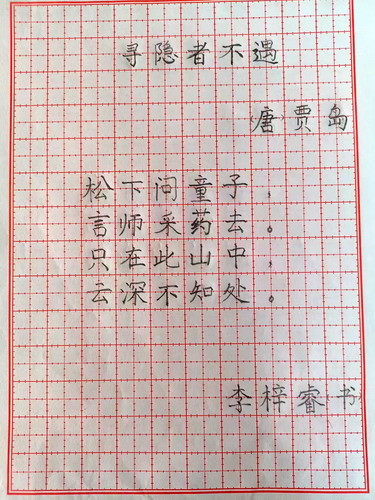 寻隐者不遇
(唐)贾岛
松下问童子，
言师采药去。
只在此山中，
云深不知处。
李梓睿(书)